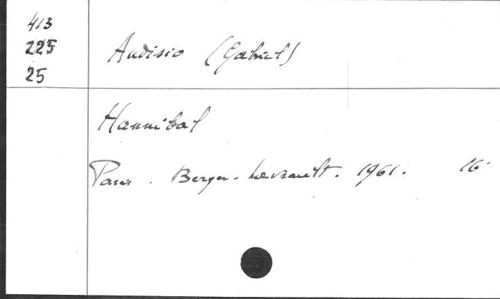 413
225
25
Audisio (Gabriel)
Hannibal
Paris. Berger-Levrault. 1961. 16